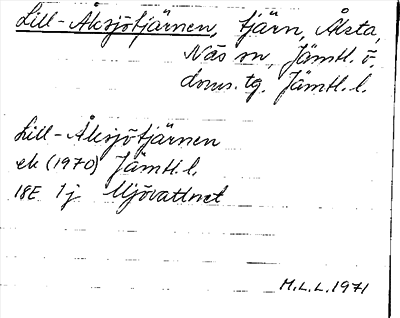 Lill-Åksjötjärnen, tjärn, Ålsta,
Näs sn, Jämtl. ö.
doms. tg. Jämtl. l.
Lill-Åksjötjärnen
ek (1970) Jämtl. l.
18E 1j Mjövattnet
M.L.L. 1971